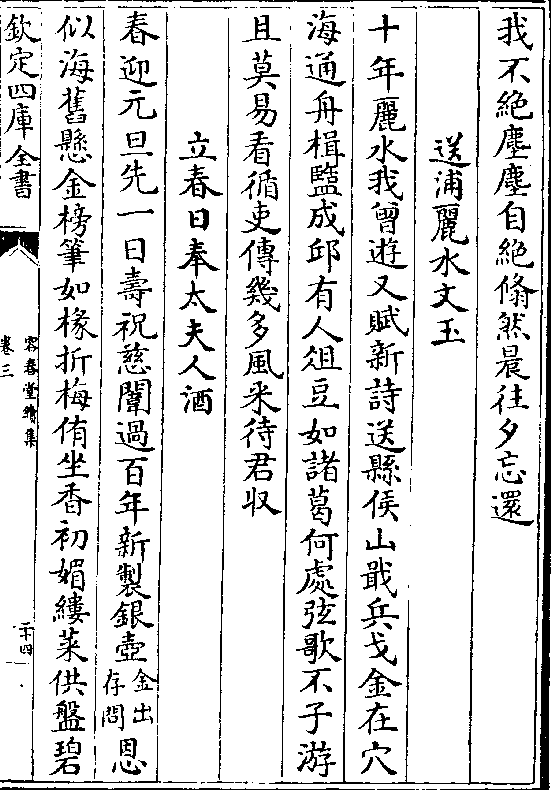 我不絶塵塵自絶翛然晨往夕忘還
送浦麗水文玉
十年麗水我曾遊又賦新詩送縣侯山戢兵戈金在穴
海通舟楫鹽成邱有人俎豆如諸葛何處弦歌不子游
且莫易看循吏傳幾多風采待君収
立春日奉太夫人酒
春迎元旦先一日壽祝慈闈過百年新製銀壺金出存問恩
似海舊懸金榜筆如椽折梅侑坐香初媚縷菜供盤碧
欽定四庫全書
容春堂續集
卷三
二十四